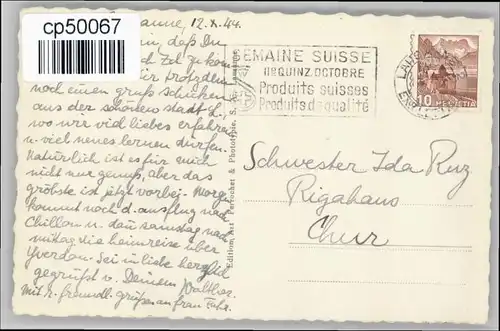 cp50067
anne, 12.X.44.
in, daß Du
Zel zukom
trotzdem
noch einen gruß schicken
aus der schönen stadt L.,
wo wir viel liebes erfahren
u. viel neues lernen durfen.
Natürlich ist es für mich
nicht nur genuß, aber das
gröbste ist jetzt vorbei. Morgen
kommt noch d. ausflug nach
Chillon u. dan samstag nach
mittag die heimreise über
Yverdon. Sei in liebe herzlich
gegrüßt v. Deinem Walther.
Mit r. freundl. grüßen an frau
Edition Art. Perrochet & Phototypie. S. A. Lausanne.
SEMAINE SUISSE
IIe QUINZ. OCTOBRE
Produits suisses
Produits de qualité
10 HELVETIA
Schwester Ida Ruz
Rigahaus
Chur